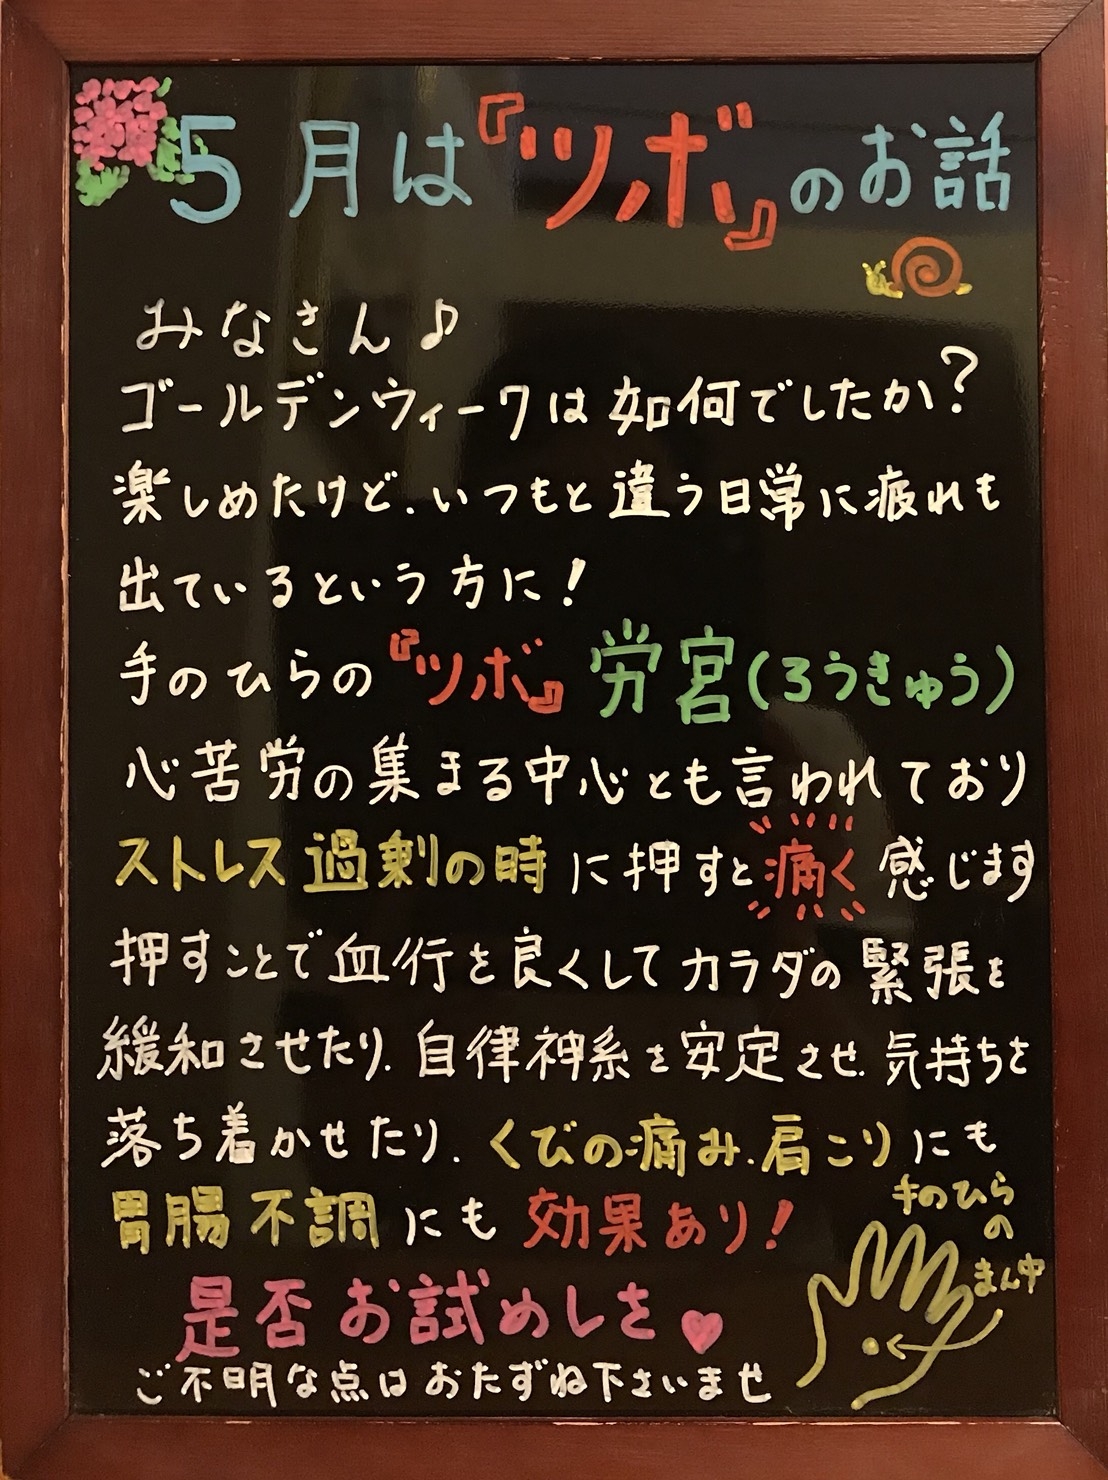 5月は『ツボ』のお話
みなさん♪
ゴールデンウィークは如何でしたか?
楽しめたけど、いつもと違う日常に疲れも
出ているという方に!
手のひらの『ツボ』労宮(ろうきゅう)
心苦労の集まる中心とも言われており
ストレス過剰の時に押すと痛く感じます
押すことで血行を良くしてカラダの緊張を
緩和させたり、自律神系を安定させ、気持ちを
落ち着かせたり、くびの痛み、肩こりにも
胃腸不調にも効果あり!
手のひら
の
まん中
是否お試めしを♥
ご不明な点はおたずね下さいませ